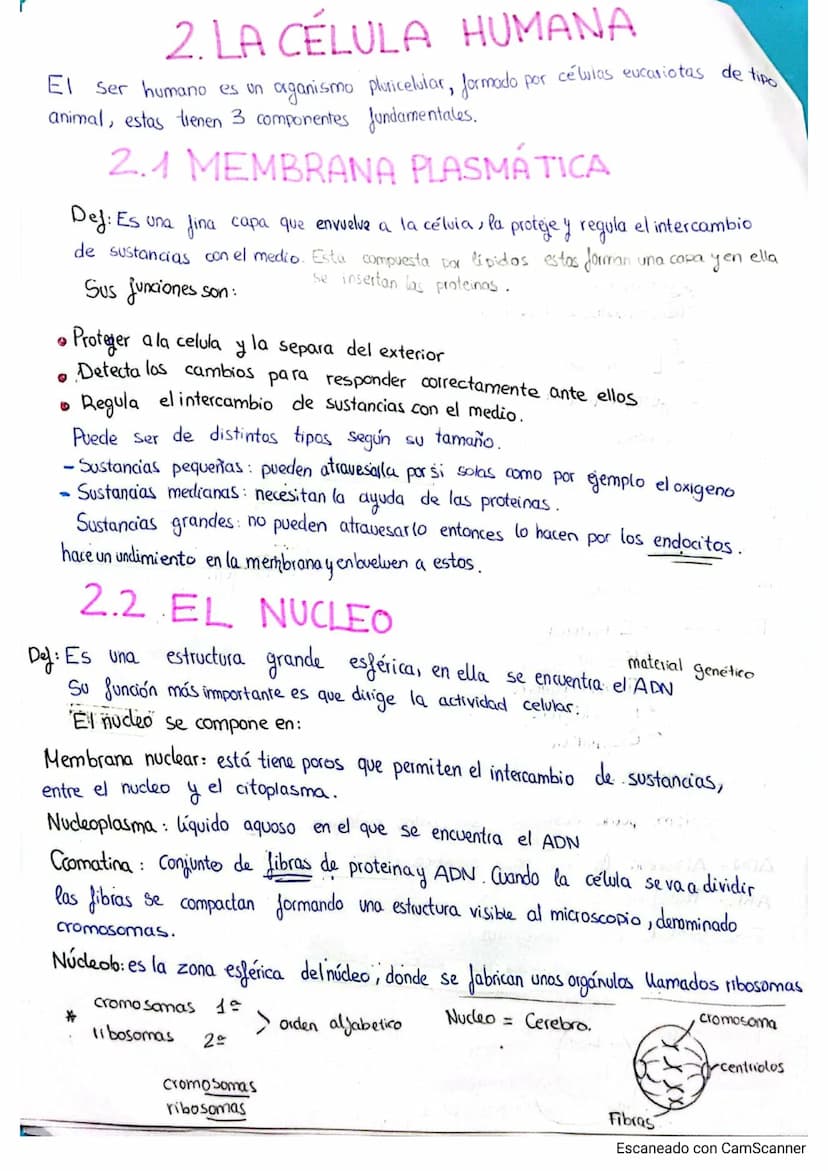 2. LA CÉLULA HUMANA
El ser humano es un organismo pluricelular, formado por células eucariotas de tipo
animal, estas tienen 3 componentes fundamentales.
2.1 MEMBRANA PLASMÁTICA
Def: Es una fina capa que envuelve a la célula, la proteje y regula el intercambio
de sustancias con el medio. Esta compuesta por lípidos estos forman una capa y en ella
se insertan las proteinas.
Sus funciones son:
• Proteger a la celula y la separa del exterior
• Detecta los cambios para responder correctamente ante ellos
• Regula el intercambio de sustancias con el medio.
Puede ser de distintos tipos según su tamaño.
- Sustancias pequeñas: pueden atravesalla por si solas como por ejemplo el oxigeno
- Sustancias medianas: necesitan la ayuda de las proteinas.
Sustancias grandes: no pueden atravesarlo entonces lo hacen por los endocitos.
hace un undimiento en la membrana y enbuelven a estos.
2.2 EL NUCLEO
Def: Es una estructura grande esférica, en ella se encuentra el ADN material genético
Su función más immportante es que dirige la actividad celular.
"El nucleo" se compone en:
Membrana nuclear: está tiene poros que permiten el intercambio de sustancias,
entre el nucleo y el citoplasma.
Nucleoplasma: líquido aquoso en el que se encuentra el ADN
Cromatina: Conjunto de fibras de proteina y ADN. Cuando la célula se va a dividir
las fibras se compactan formando una estructura visible al microscopio, denominado
cromosomas.
Núcleolo: es la zona esférica del núcleo, donde se fabrican unos orgánulos llamados ribosomas
* cromosomas 1º
ribosomas 2º
> orden alfabetico
Nucleo = Cerebro.
cromosomas
ribosomas
cromosoma
centriolos
Fibras
Escaneado con CamScanner